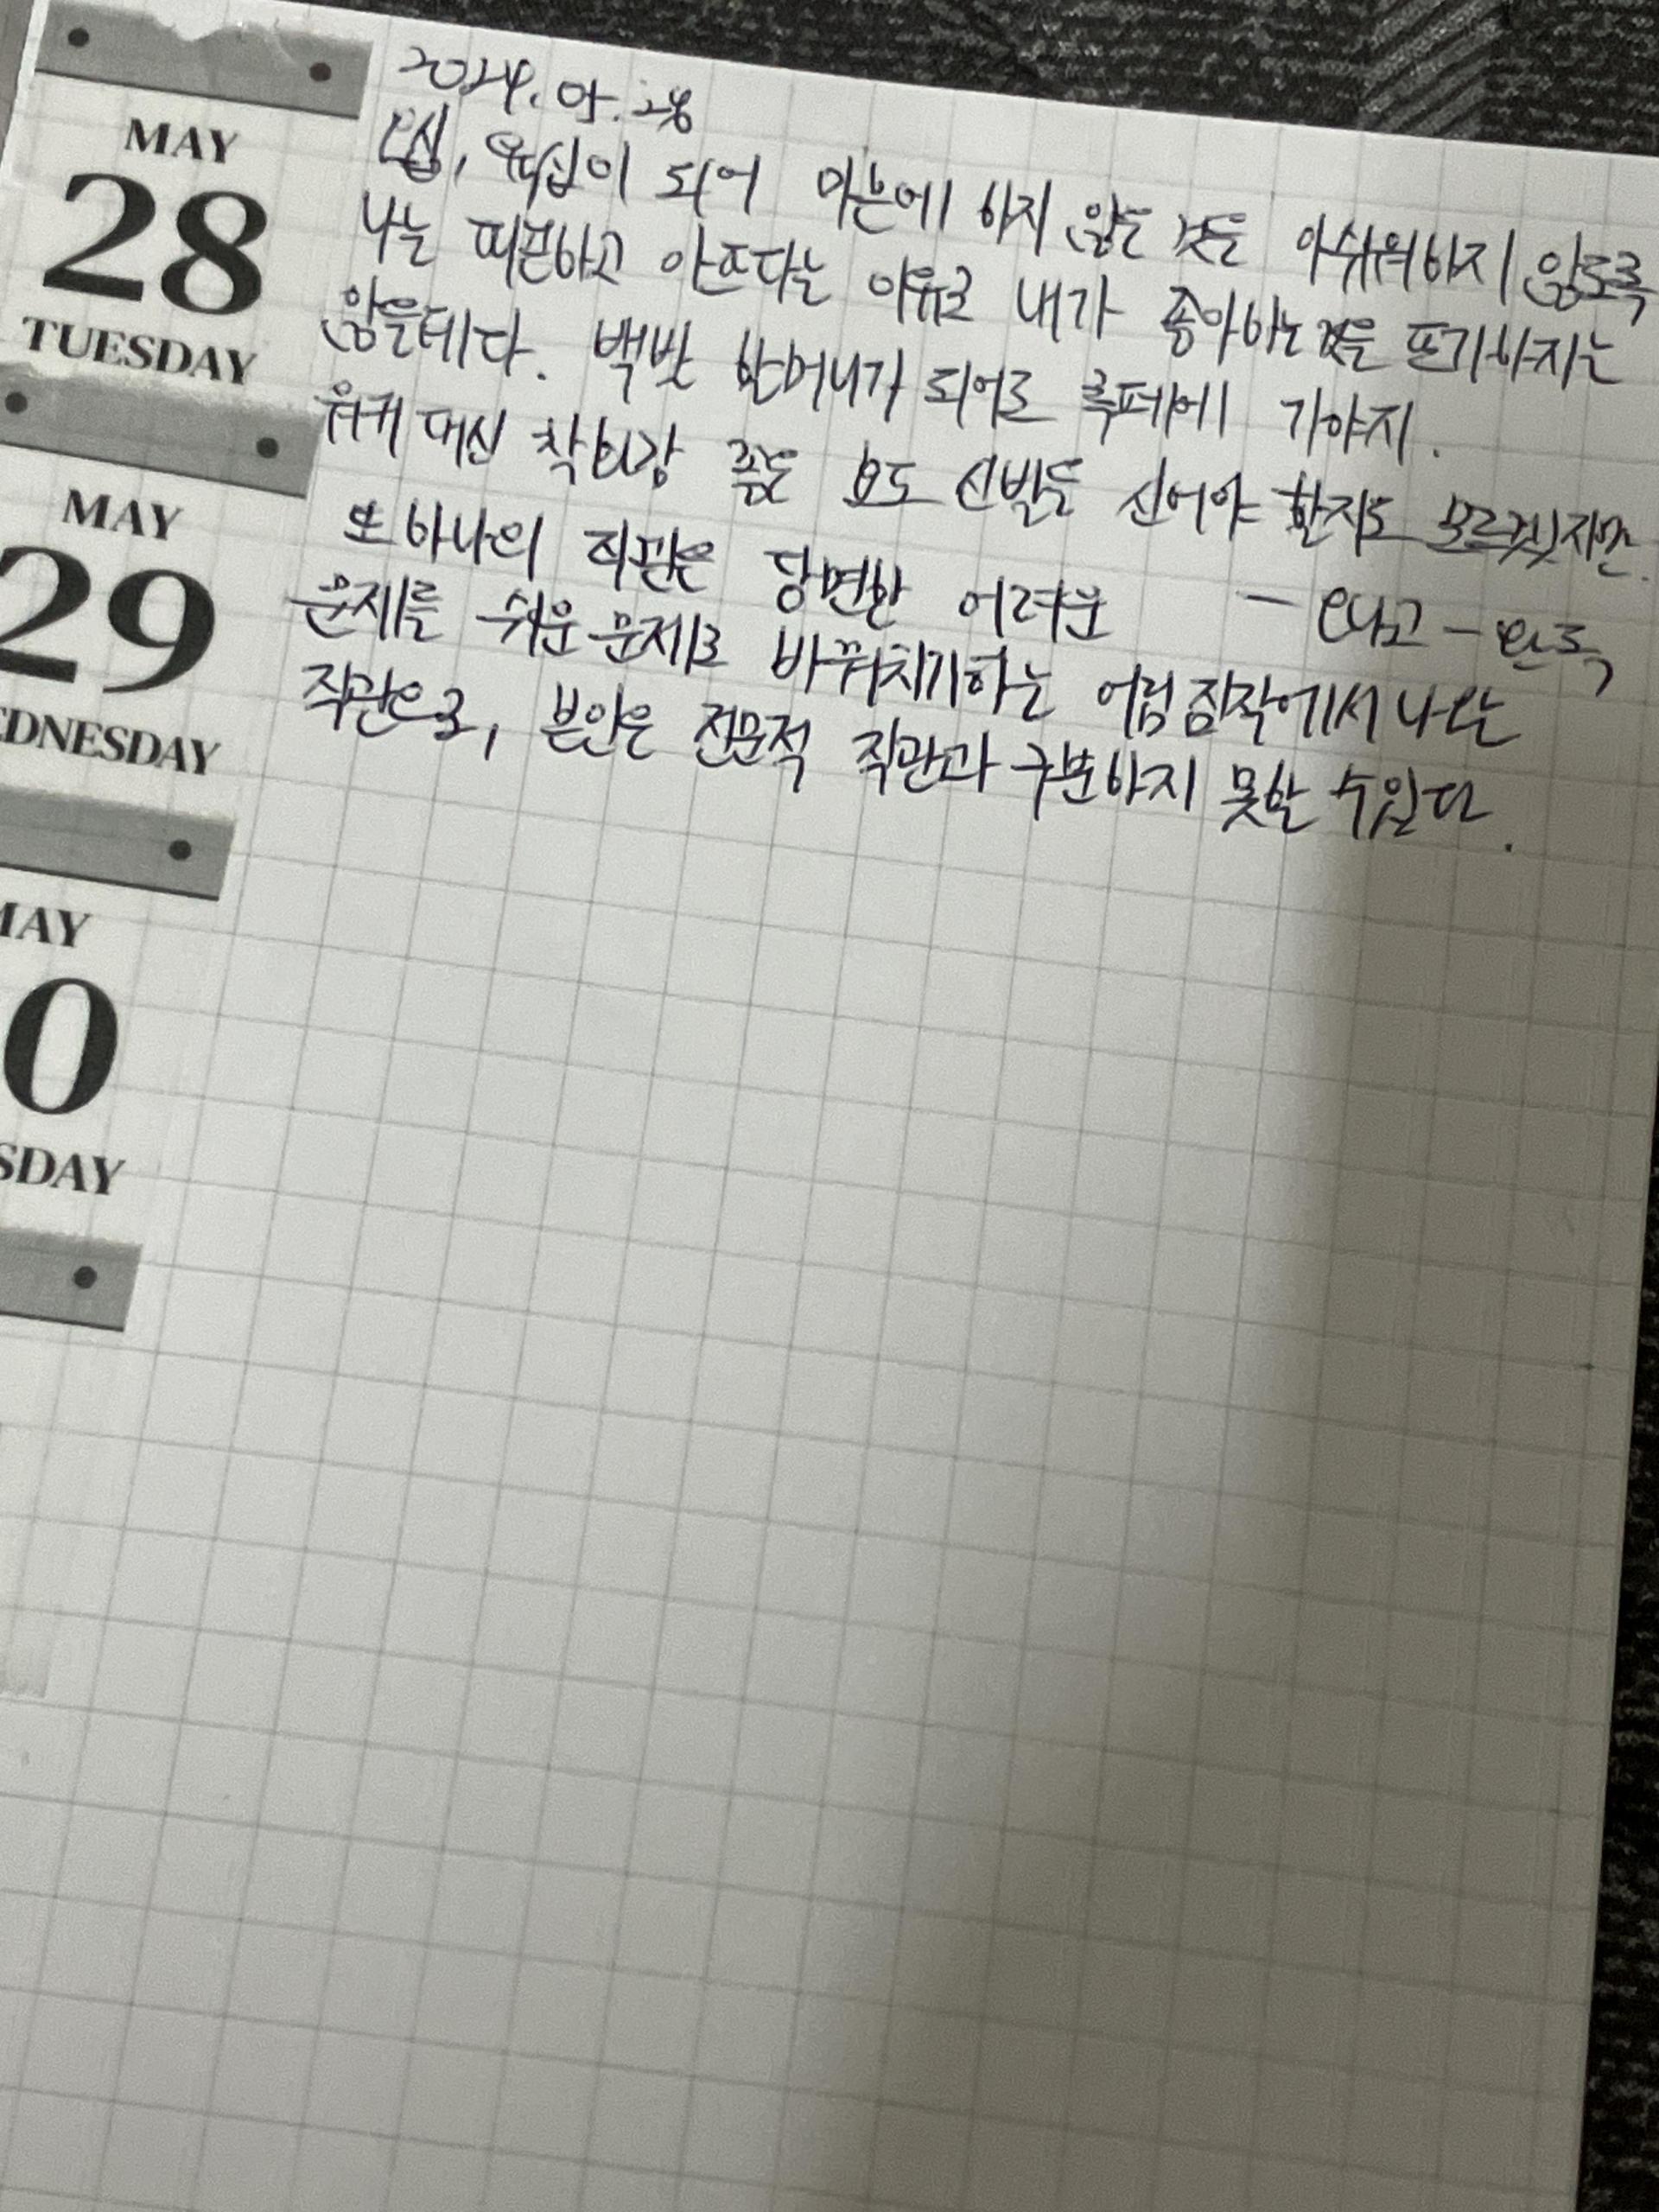 MAY
28
TUESDAY
MAY
29
EDNESDAY
MAY
0
SDAY
2024.05.28
오십, 육십이 되어 마흔에 하지 않은 것을 아쉬워하지 않도록
나는 피곤하고 아프다는 이유로 내가 좋아하는 것을 포기하지는
않을테다. 백발 할머니가 되어도 룩페에 가야지.
워커 대신 착화감 좋은 효도 신발을 신어야 할지도 모르겠지만.
또 하나의 직관은 당면한 어려운
문제를 쉬운 문제로 바꿔치기하는 어림짐작에서 나오는
직관으로, 본인은 전문적 직관과 구분하지 못할 수 있다.